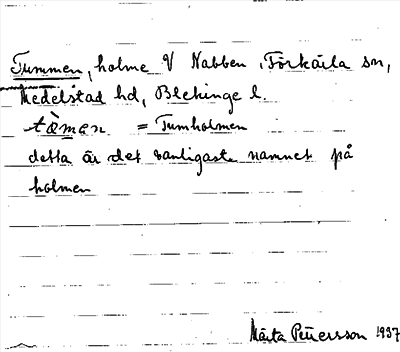 Tummen, holme V Nabben, Förkärla sn,
Medelstad hd, Blekinge l.
tòmen = Tumholmen
detta är det vanligaste namnet på
holmen
Märta Petersson 1937